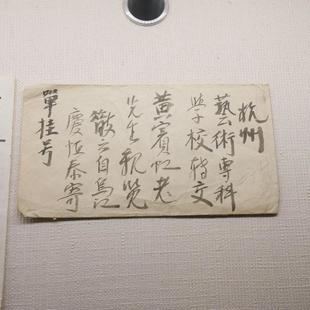 杭州
藝術專科
學校轉交
黄賓虹老
先生親覽
徽六自烏江
慶恒泰寄
單挂号